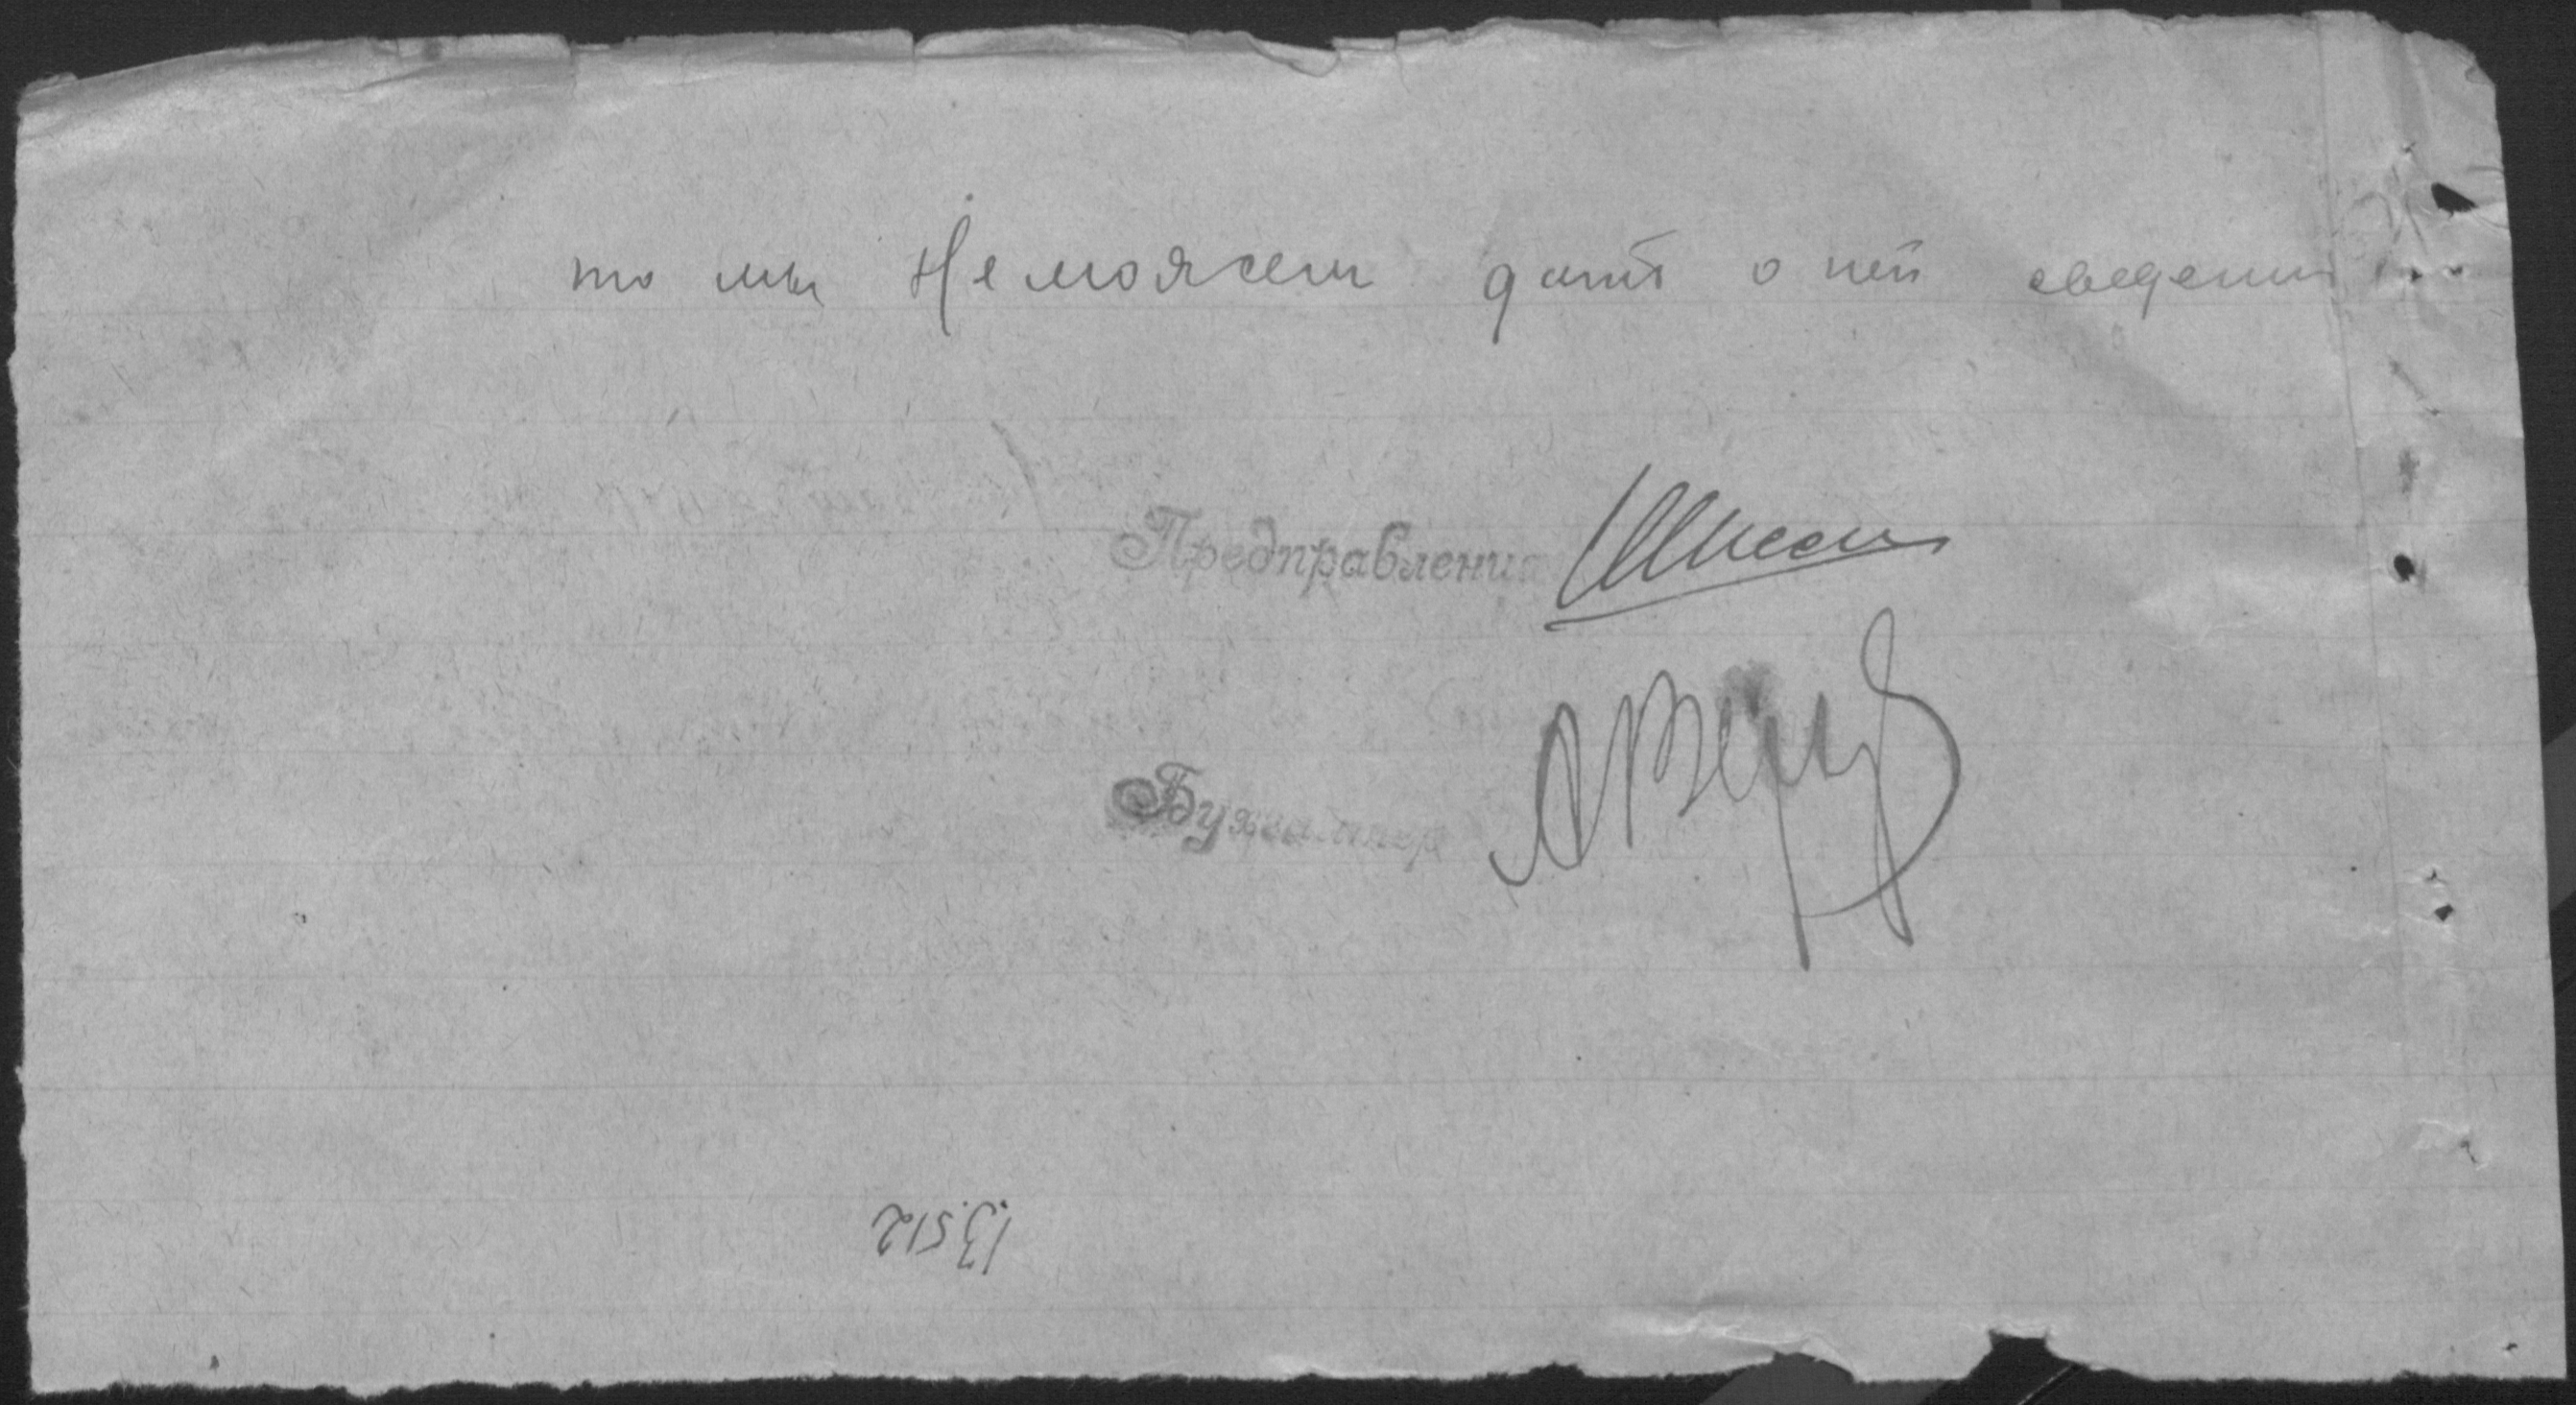 то мы Не можем дать о ней сведени
Предправления
Бухгалтер
13.512